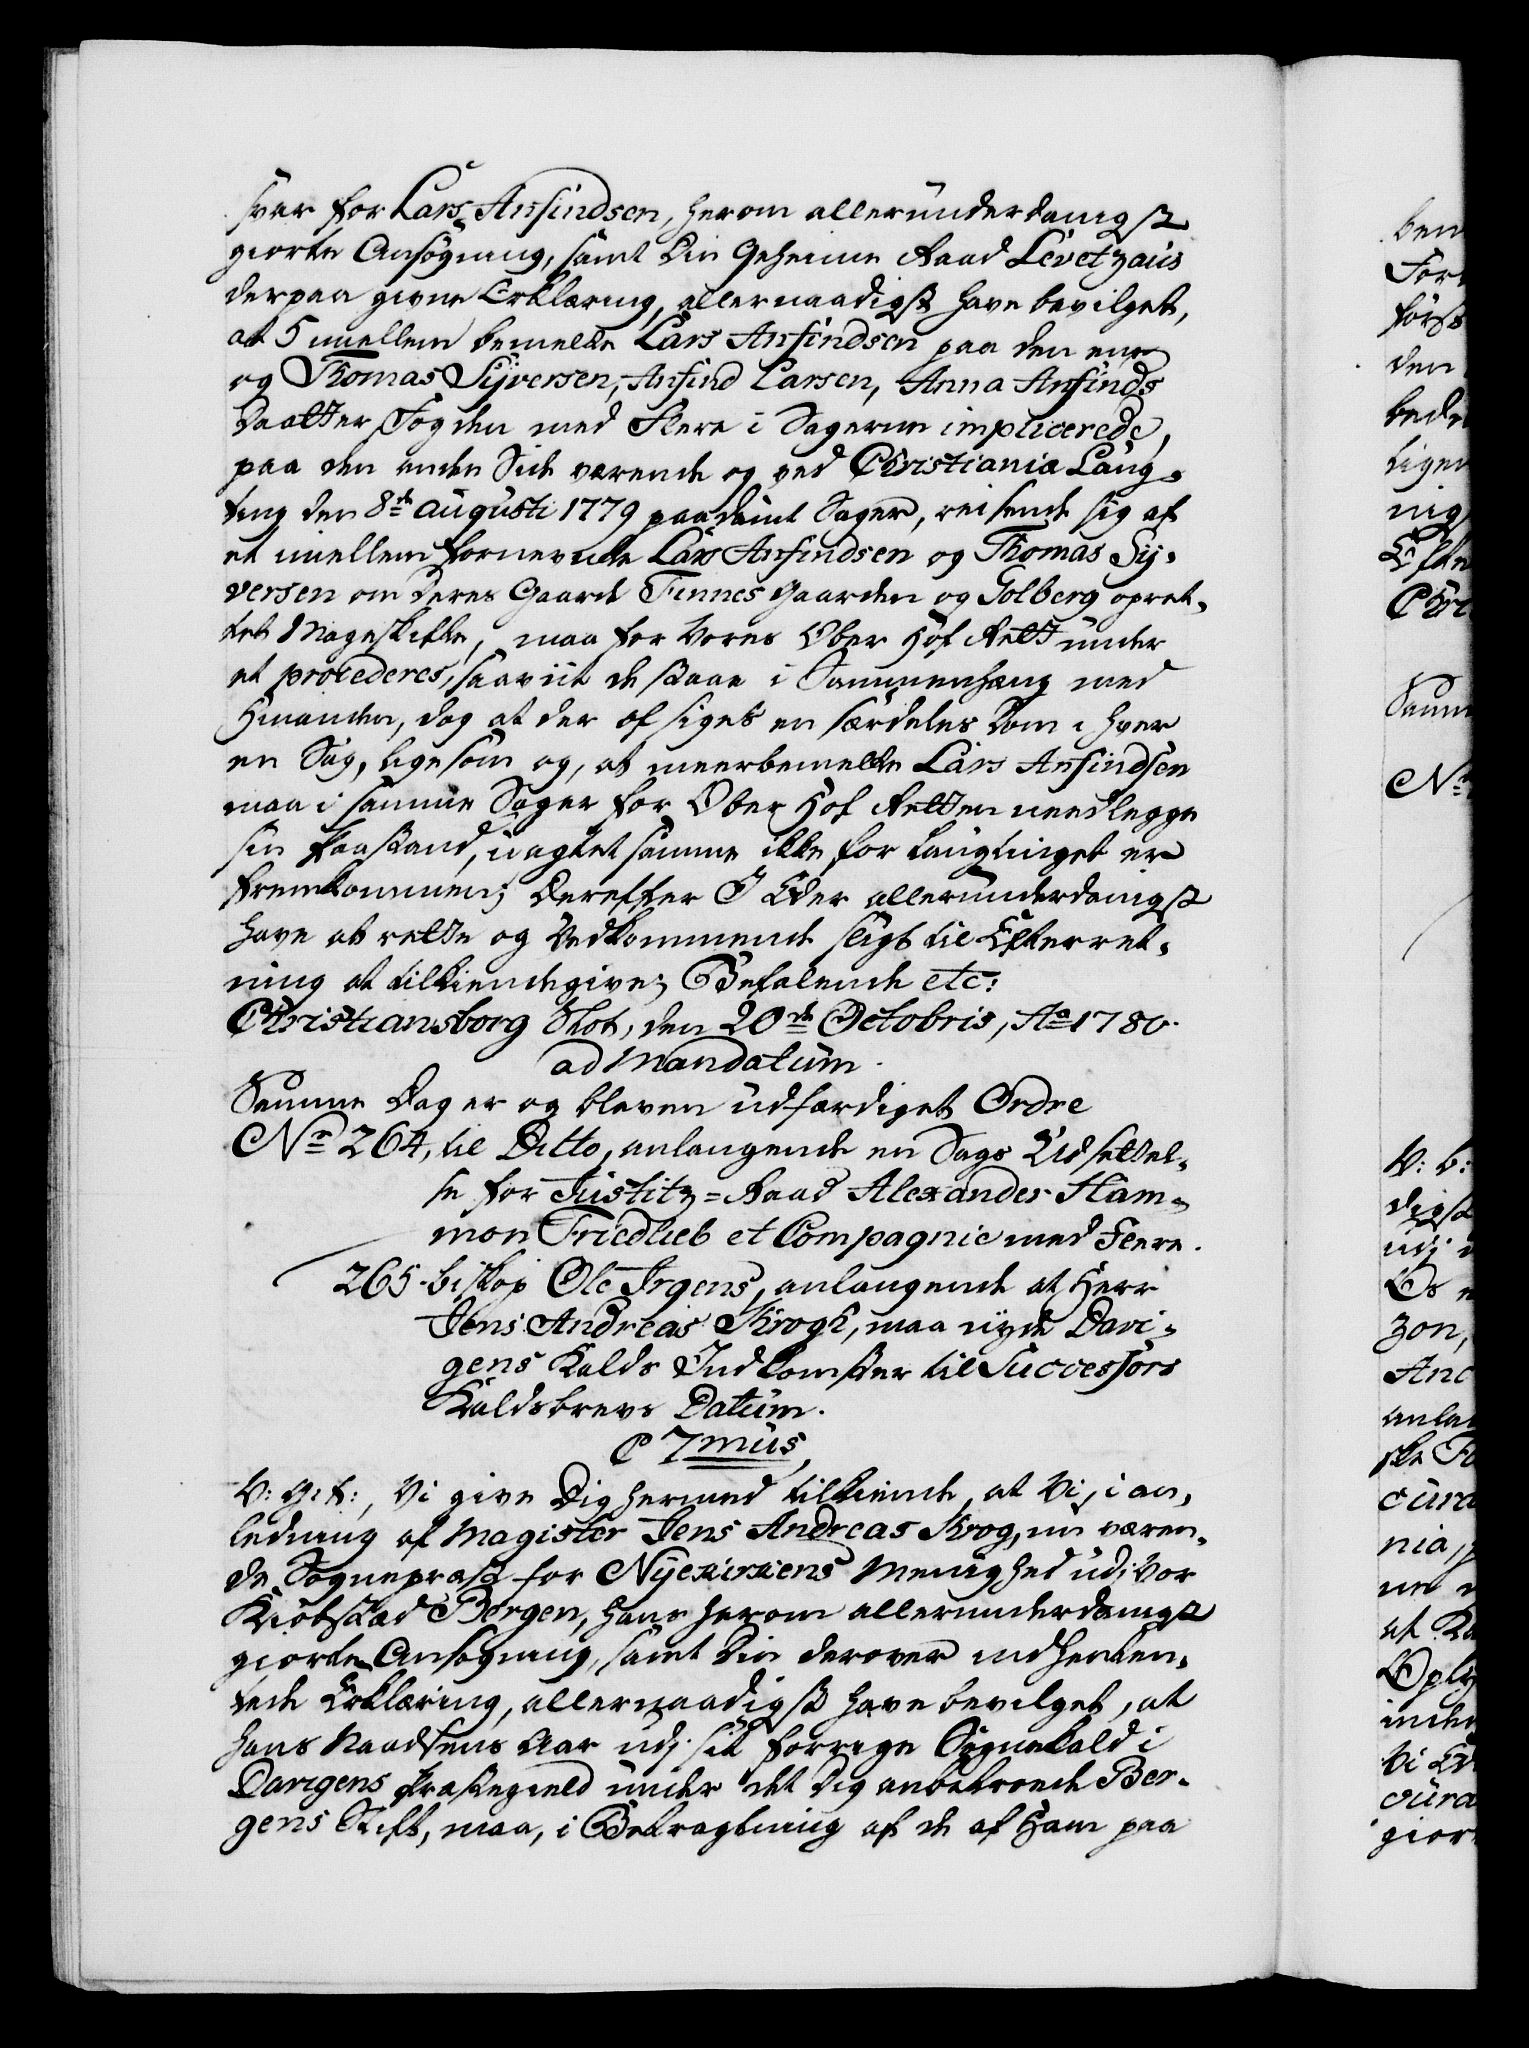 svar for Lars Anfindsen, herom allerunderdanigst
giorte Ansøgning, samt Din Geheime Raad Levetzaus
derpaa givne Erklæring, allernaadigst have bevilget,
at 5 mellem bemelte Lars Anfindsen paa den ene
og Thomas Sÿversen, Anfind Larsen, Anna Anfinds
Daatter, Fogden med Flere i Sagerne implicerede,
paa den anden Side værende og ved Christiania Laug-
ting den 8de Augusti 1779 paadømt Sager, reisende sig af
et imellem fornevnte Lars Anfindsen og Thomas Sÿ-
versen om deres Gaarde Finnes Gaarden og Golberg opret-
tet Mageskifte, maa for Vores Ober Hof Rett under
et procederes, saaviit de staae i Sammenhæng med
Hinanden, dog at der afsiges en særdeles Dom i hver
en Sag, ligesom og, at meerbemelte Lars Anfindsen
maa i samme Sager for Ober Hof Retten needlegge
sin Paastand, uagtet samme ikke for Laugtinget er
fremkommen; Derefter I Eder allerunderdanigst
have at rette og Vedkommende sligt til Efterret-
ning at tilkiendegive; Befalende etc:
Christiansborg Slot, den 20de Octobris, Ao 1780.
ad Mandatum.
Samme Dag er og bleven udfærdiget Ordre
No 264, til Ditto, anlangende en Sags Udsettel-
se for Justitz-Raad Alexander Ham-
mon Friedlieb et Compagnie med Fleere.
265. biskop Ole Irgens, anlangende at Herr
Jens Andreas Krogh, maa nÿde Davi-
gens Kalds Indkomster til Successors
Kaldsbrevs Datum.
C 7mus,
V: G: T:, Vi give Dig hermed tilkiende, at Vi, i an-
ledning af Magister Jens Andreas Krog, nu væren-
de Sognepræst for Nÿekirkens Menighed udi Vor
Kiøbstad Bergen, hans herom allerunderdanigst
giorte Ansøgning, samt Din derover indhenten-
tede Erklæring, allernaadigst have bevilget, at
hans Naadsens Aar udj sit forrige Sognekald i
Davigens Præstegield under det Dig anbetroede Ber-
gens Stift, maa, i Betragtning af de af Ham paa